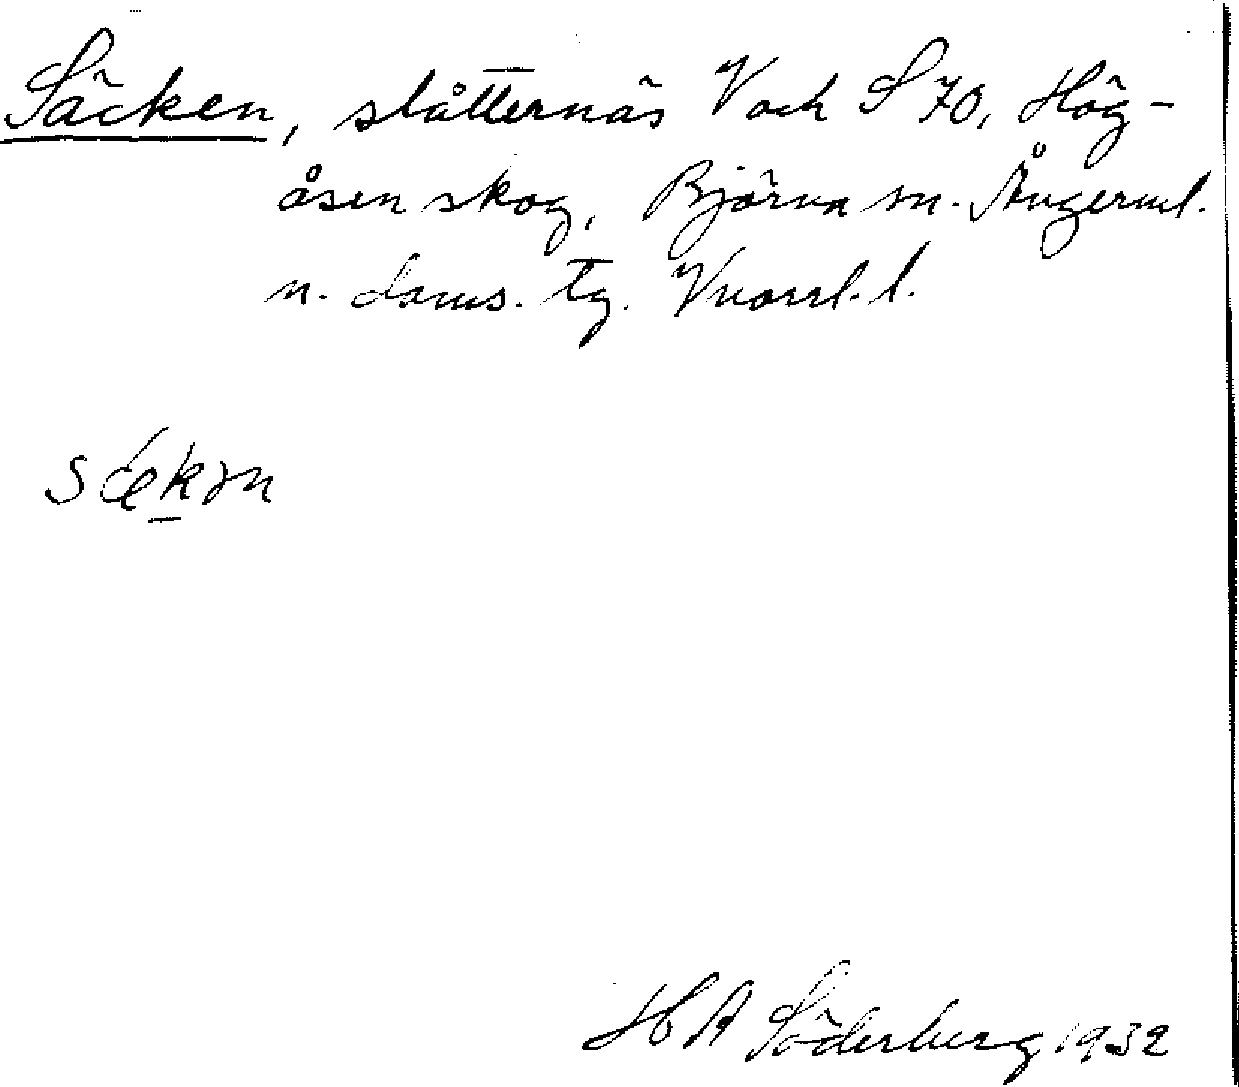 Säcken, slåtternäs V och S 70, Hög-
åsen skog, Björna sn. Ångerml.
n. doms. tg. Vnorrl. l.
sǽkən
H A Söderberg 1932